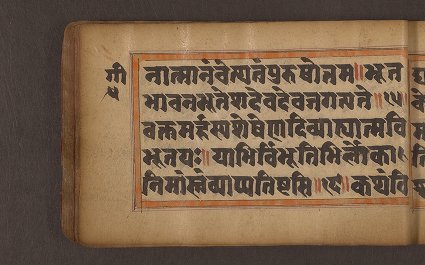 गी
नात्मानंवेत्थत्वंपुरुषोत्तम॥भूत
भावनभूतेशदेवदेवजगत्पते॥१५॥
वक्तुमर्हस्यशेषेणदिव्याह्यात्मवि
भूतयः॥याभिर्विभूतिभिर्लोका
निमांस्त्वंव्याप्यतिष्ठसि॥१६॥कथंवि